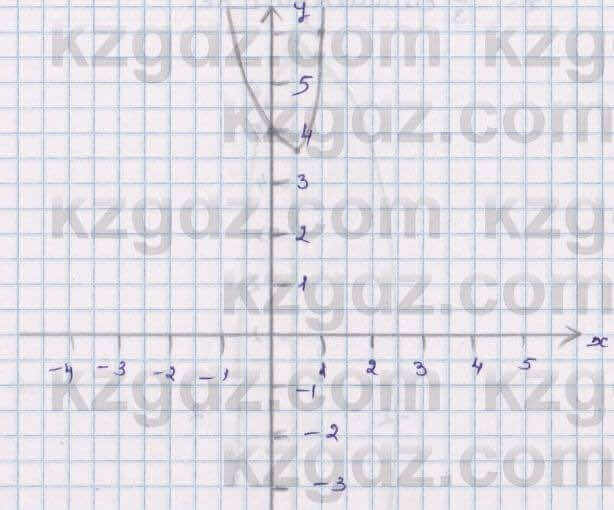 y
kzgdz.com kzg
5
kzgdz.com
4
3
kzgdz.com kzg
2
1
kzgdz.com
x
-4 -3 -2 -1 1 2 3 4 5
kzgdz.com kzg
-1
-2
kzgdz.com
-3